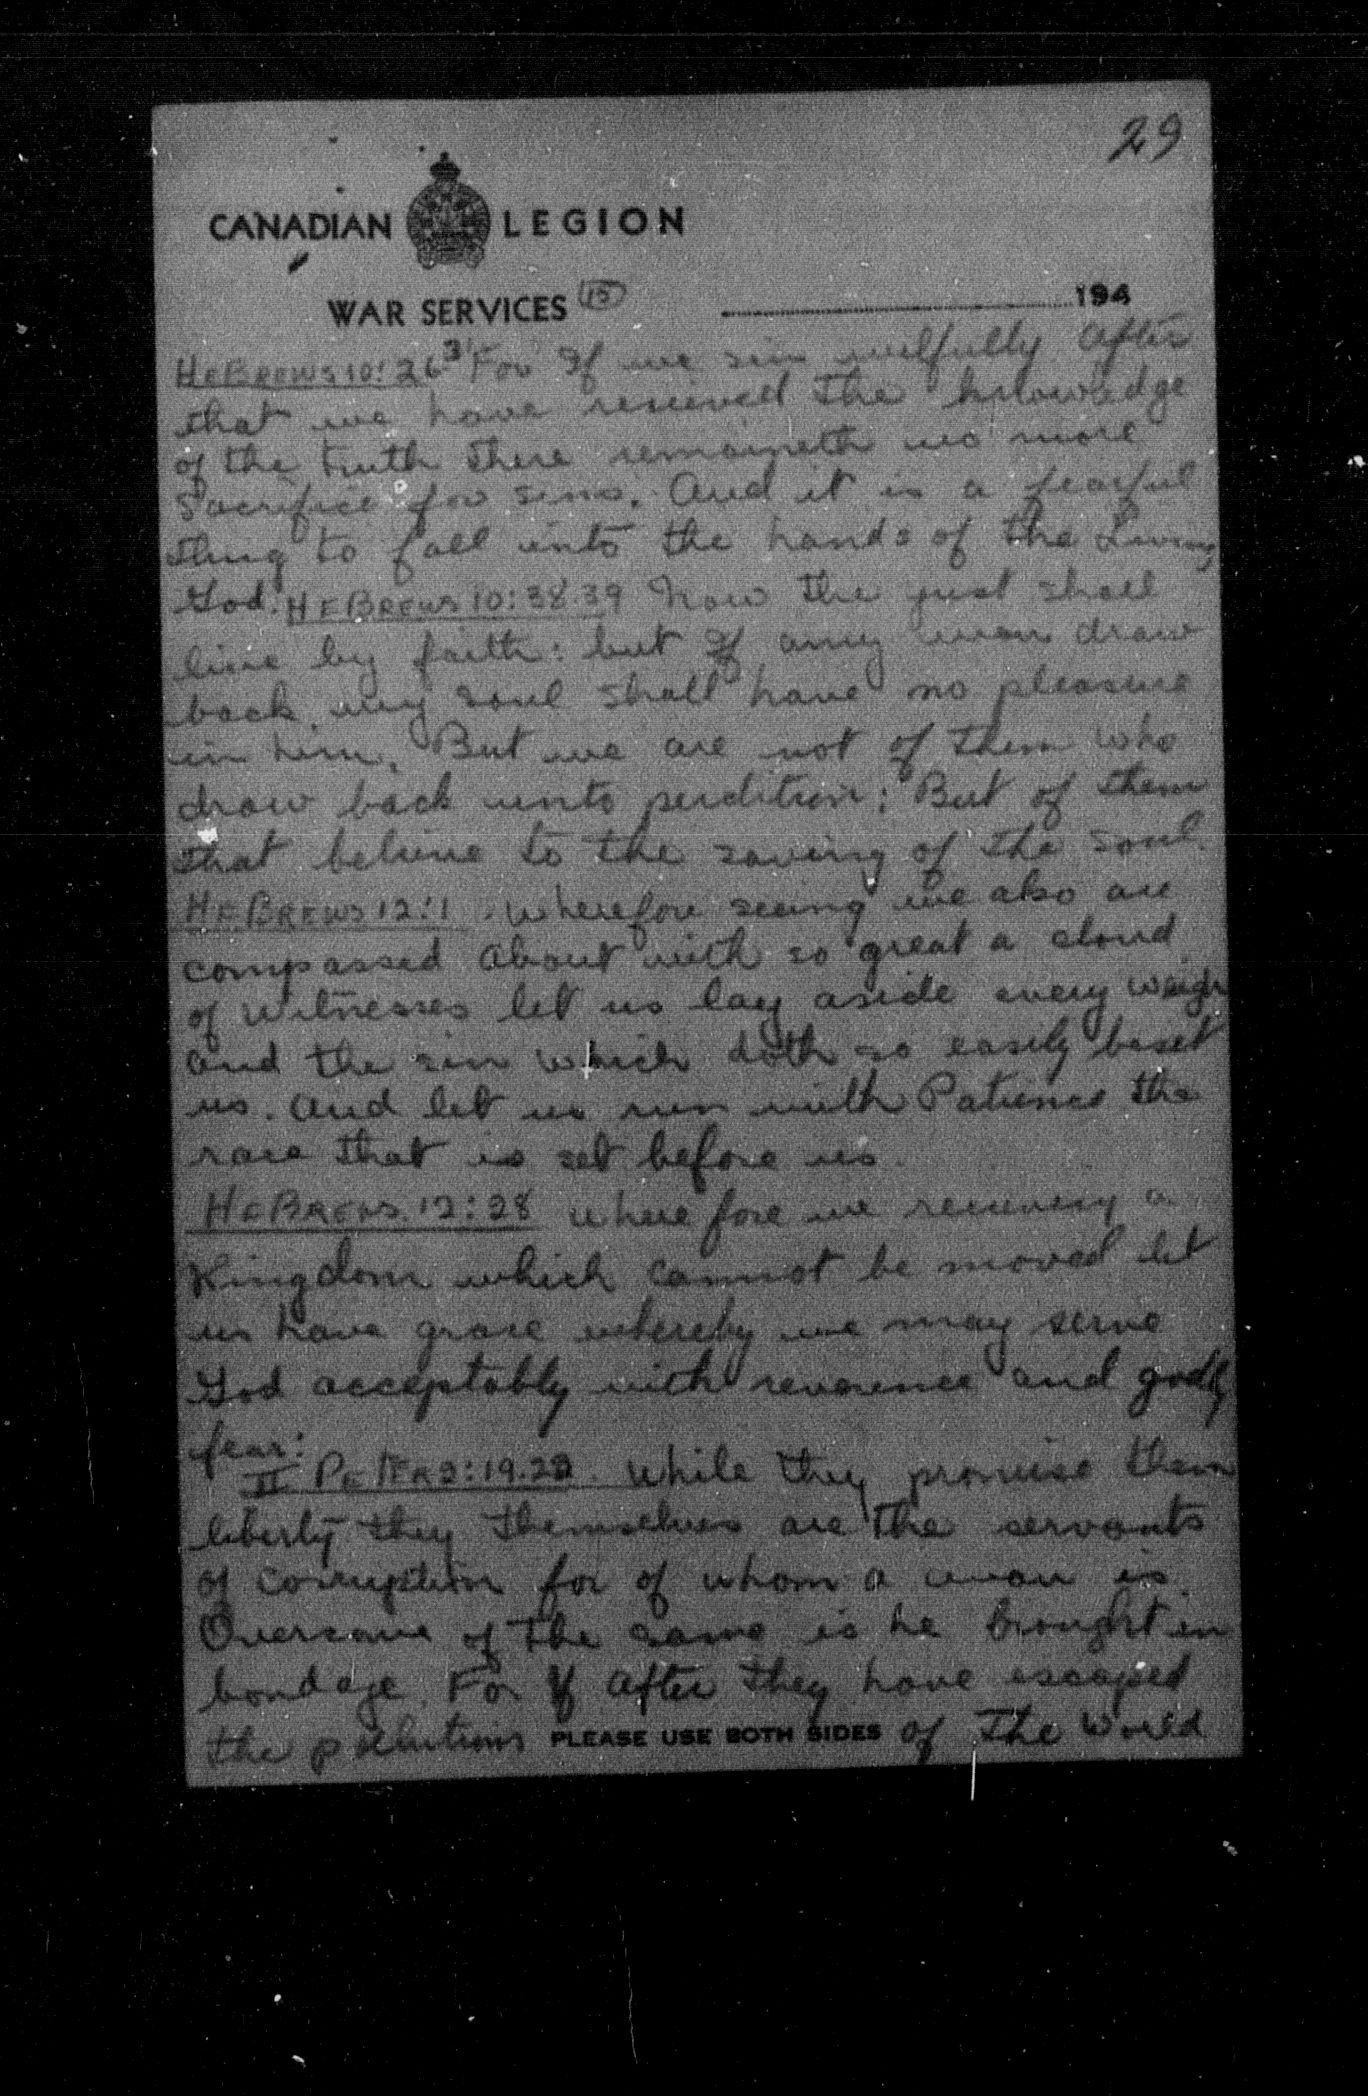 29
CANADIAN LEGION
WAR SERVICES 15 194
HEBREWS 10:26 31 For If we sin wilfully After
that we have recieved the knowledge
of the truth there remaineth no more
Sacrifice for sins. And it is a fearful
thing to fall into the hands of the Living
God. HEBREWS 10:38.39 Now the just shall
live by faith: but If any man draw
back, my soul shall have no pleasure
in him. But we are not of them who
draw back unto perdition: But of them
that believe to the saving of the soul.
HEBREWS 12:1. Wherefore seeing we also are
compassed About with so great a cloud
of witnesses let us lay aside every weigh
and the sin which doth so easily beset
us. And let us run with Patience the
race that is set before us.
HEBREWS. 12:28 where fore we recieving a
Kingdom which cannot be moved let
us have grace whereby we may serve
God acceptably with reverence and godly
fear:
II PETER 2:19.22. While they promise them
liberty they themselves are the servants
of corruption for of whom a man is
Overcome of the same is he brought in
bondage. For If After they have escaped
the pollutions PLEASE USE BOTH SIDES of The World